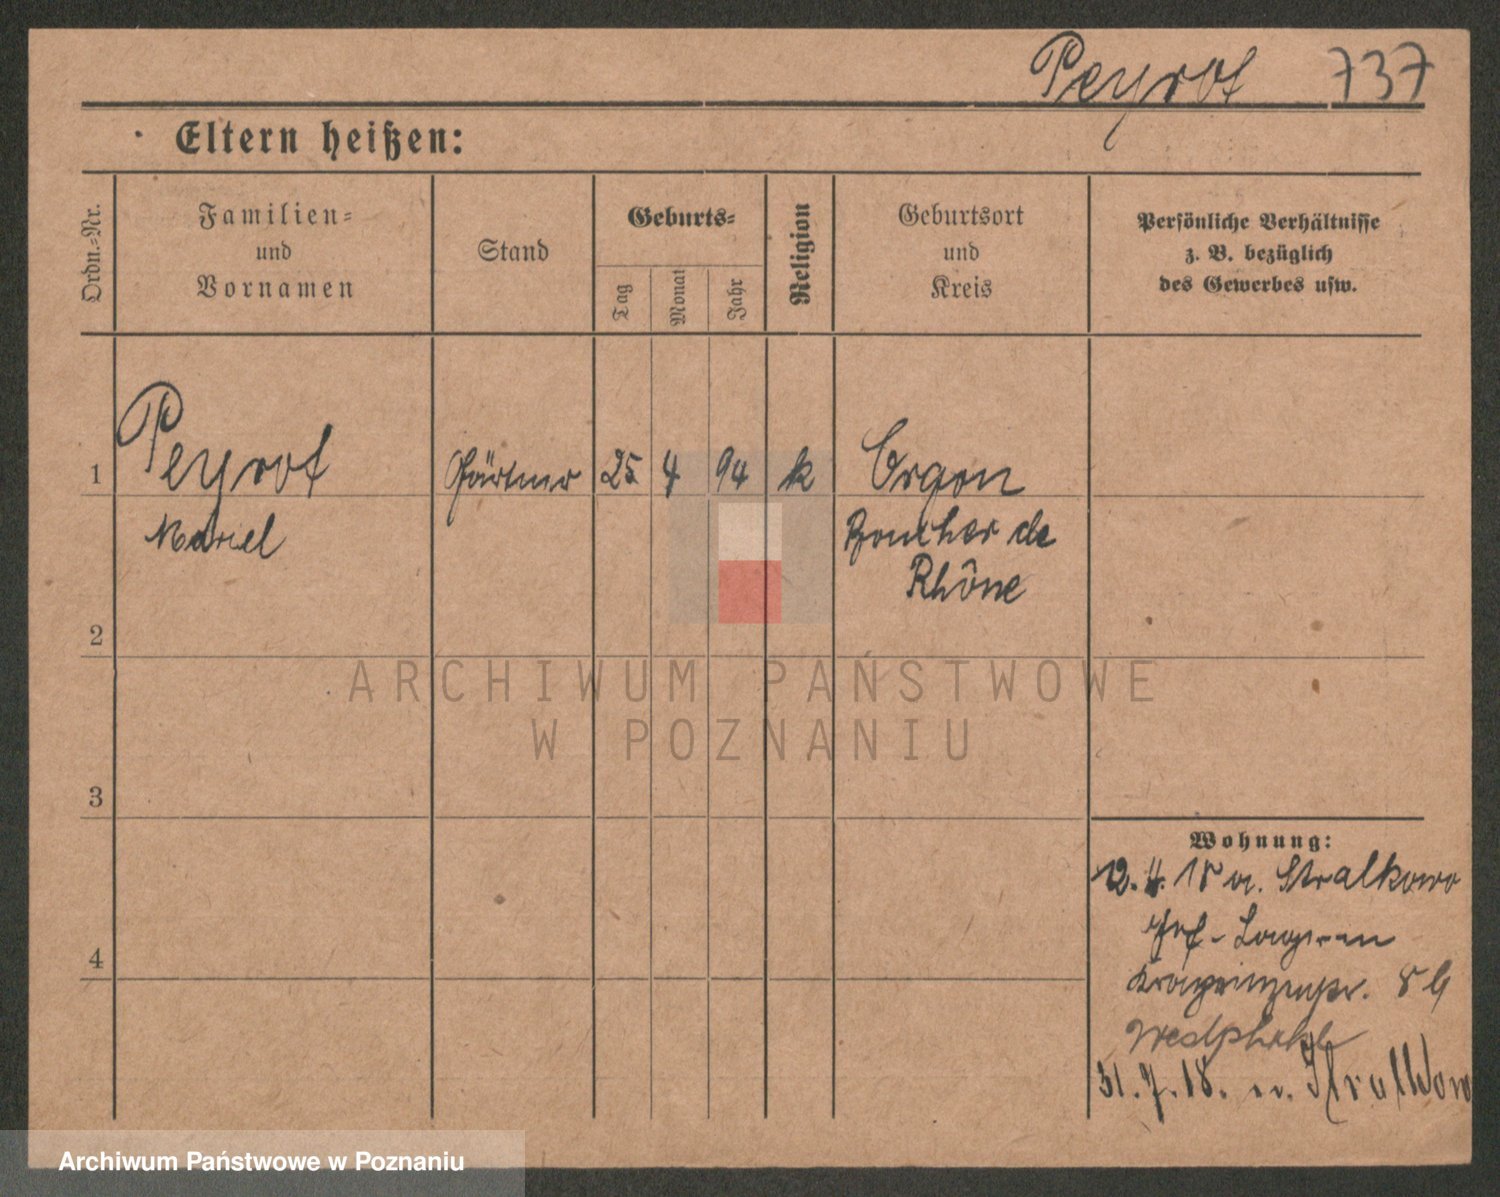 Peyrot 737
Eltern heißen:
Ordn.=Nr.
Familien=
und
Vornamen
Stand
Geburts=
Tag
Monat
Jahr
Religion
Geburtsort
und
Kreis
Persönliche Verhältnisse
z. B. bezüglich
des Gewerbes usw.
1 Peyrot Gärtner 25 4 94 k Orgon
Bouches de
Rhône
2
3
4
Wohnung:
12. 4. 18 v. Stralkowo
Gef.-Lager
Kronprinzenstr. 86
31. 7. 18. Stralkowo
ARCHIWUM PAŃSTWOWE
W POZNANIU
Archiwum Państwowe w Poznaniu